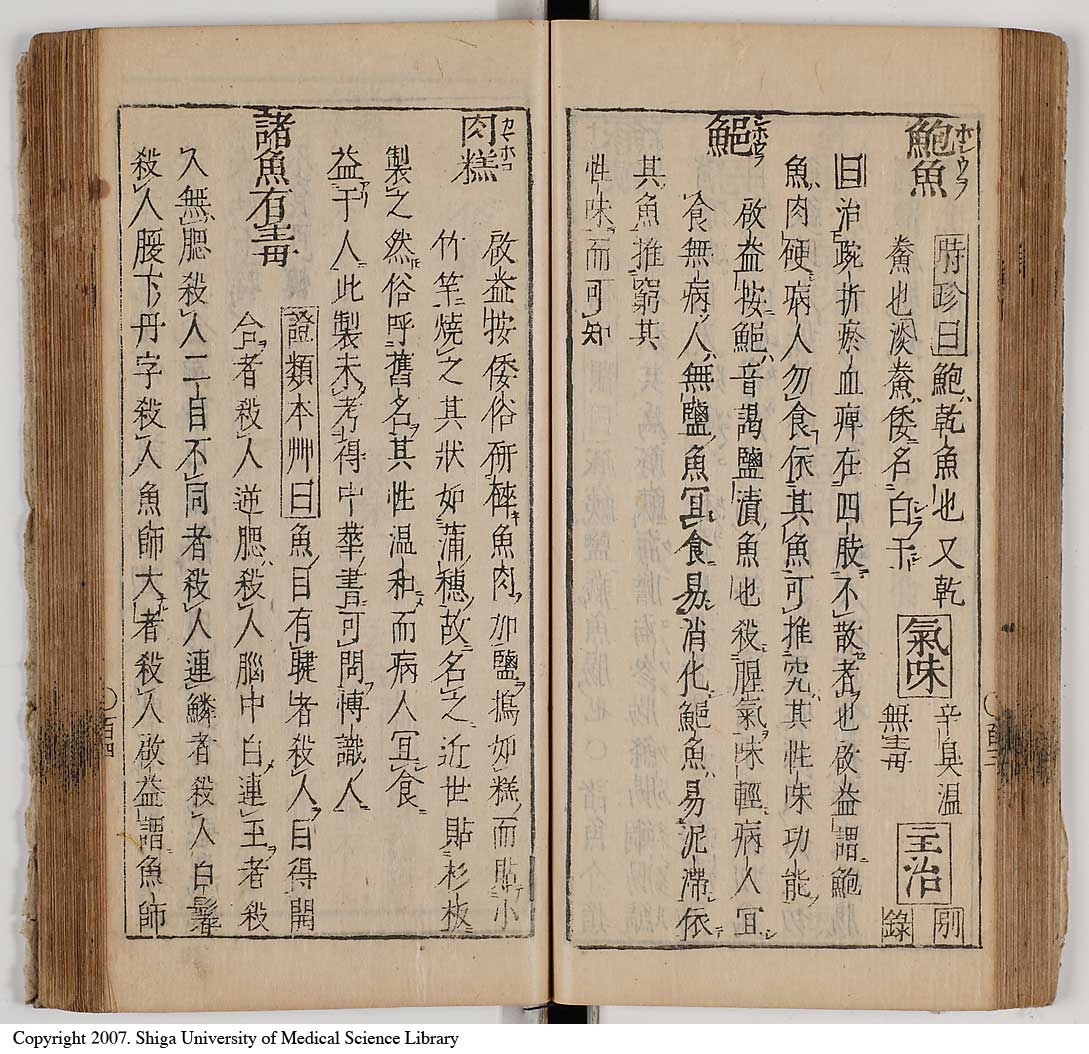 鮑魚 時珍曰 鮑乾魚也又乾
鯗也淡鯗倭名白干 氣味 辛臭温
無毒 主治 別
錄
曰治踠折瘀血痺在四肢不散者也啟益謂鮑
魚肉硬病人勿食依其魚可推究其性味功能
䱒 啟益按䱒音謁鹽漬魚也殺腥氣味輕病人宜
食無病人無鹽魚冝食易消化䱒魚易泥滯依
其魚推窮其
性味而可知
肉糕
啟益按倭俗研碎魚肉加鹽搗如糕而貼小
竹竿燒之其狀如蒲穗故名之近世貼杉板
製之然俗呼舊名其性温和而病人冝食
益于人此製未考得中華書可問博識人
諸魚有毒 證類本艸曰 魚目有睫者殺人目得開
合者殺人逆腮殺人腦中白連主者殺
人無腮殺人二目不同者殺人連鱗者殺人白鬐
殺人腹下丹字殺人魚師大者殺人啟益謂魚師
Copyright 2007. Shiga University of Medical Science Library